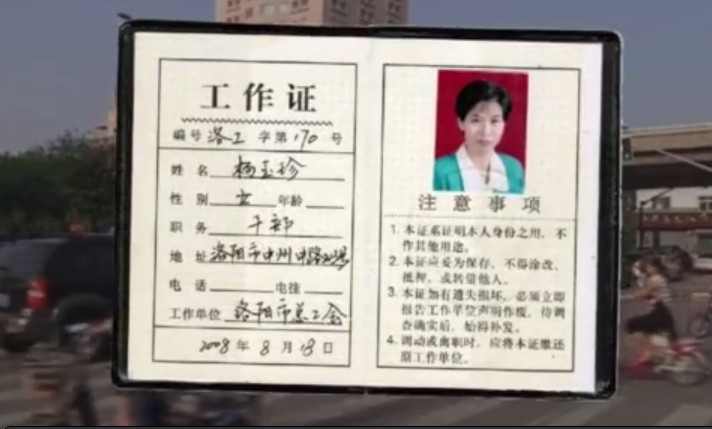 工作证
编号 洛工 字第 170 号
姓名 杨玉珍
性别 女 年龄
职务 干部
地址 洛阳市中州中路
电话 电挂
工作单位 洛阳市总工会
2008 年 8 月 18 日
注意事项
1. 本证系证明本人身份之用，不
作其他用途。
2. 本证应妥为保存，不得涂改、
抵押，或转借他人。
3. 本证如有遗失损坏，必须立即
报告工作单位声明作废，待调
查确实后，始得补发。
4. 调动或离职时，应将本证缴还
原工作单位。